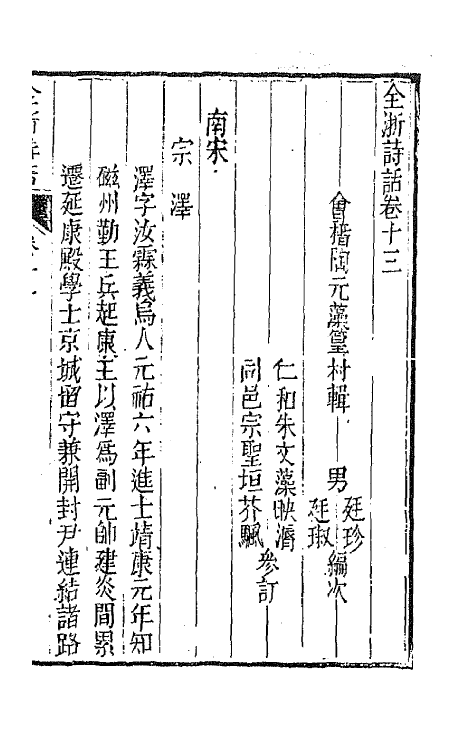 全浙詩話卷十三
會稽陶元藻篁村輯
男
廷珍
廷琡
編次
仁和朱文藻映漘
同邑宗聖垣芥颿
參訂
南宋
宗澤
澤字汝霖義烏人元祐六年進士靖康元年知
磁州勤王兵起康王以澤爲副元帥建炎間累
遷延康殿學士京城留守兼開封尹連結諸路
全浙詩話